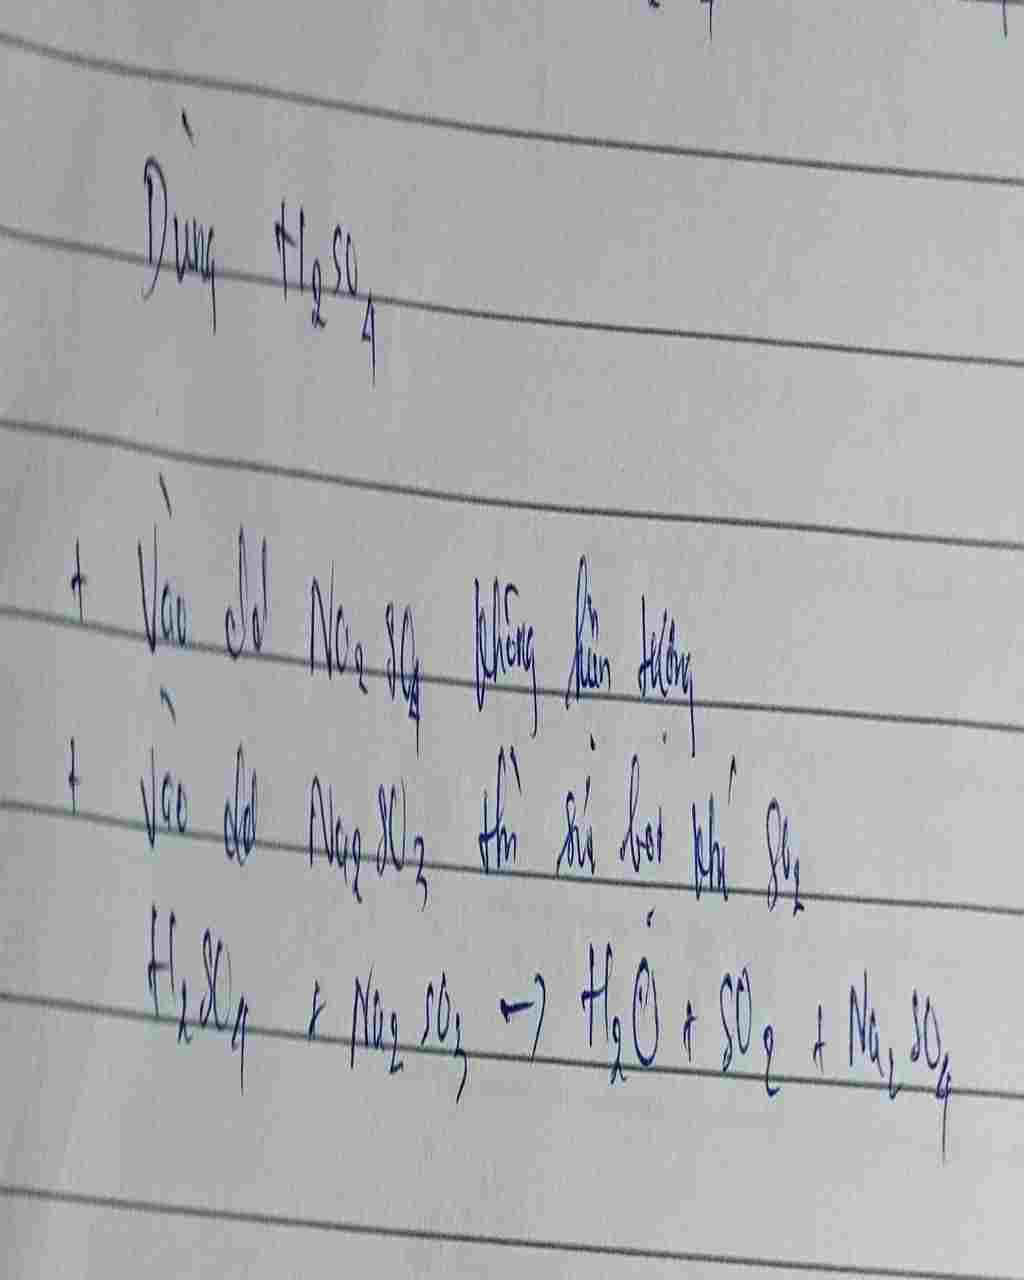 Dùng H₂SO₄
+ Vào dd Na₂SO₄ không hiện tượng
+ Vào dd Na₂SO₃ thì sủi bọt khí SO₂
H₂SO₄ + Na₂SO₃ → H₂O + SO₂ + Na₂SO₄